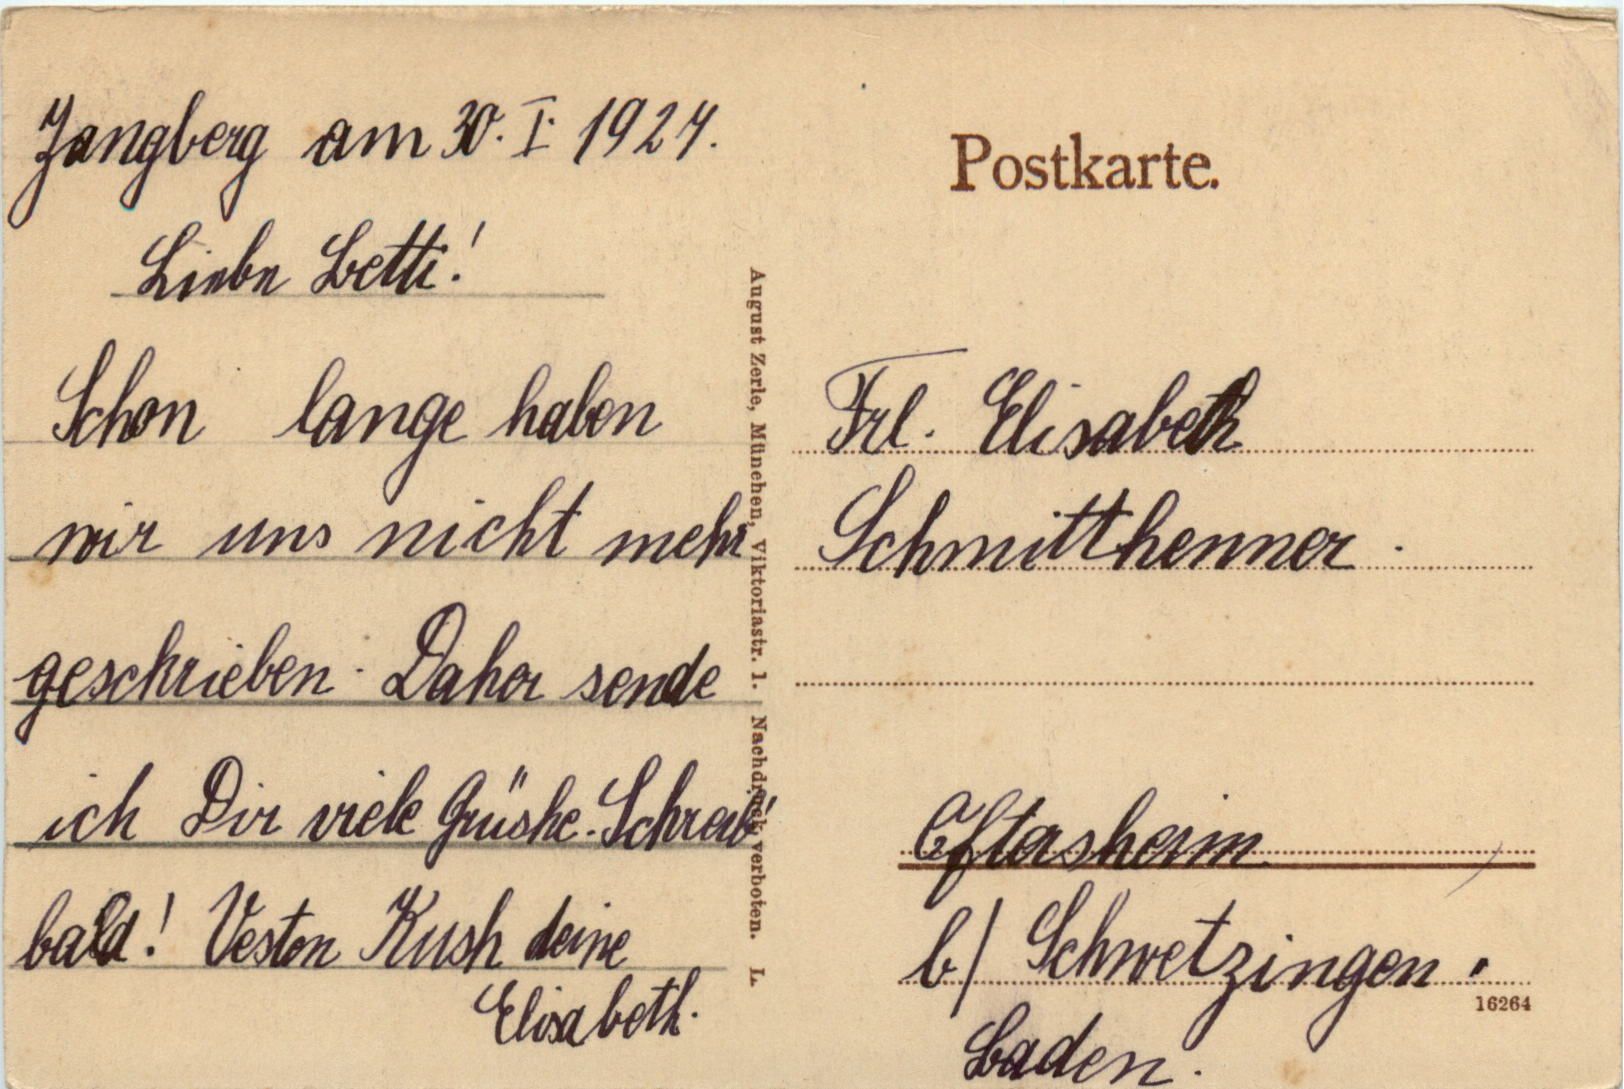 Zangberg am 30. I. 1924.
Liebe Betti!
Schon lange haben
wir uns nicht mehr
geschrieben. Daher sende
ich Dir viele Grüshe. Schreib'
bald! Vesten Kush deine
Elisabeth.
August Zerle, München, Viktoriastr. 1. Nachdruck verboten. L.
Postkarte.
Frl. Elisabeth
Schmitthenner.
Oftersheim
b/ Schwetzingen.
16264
Baden.